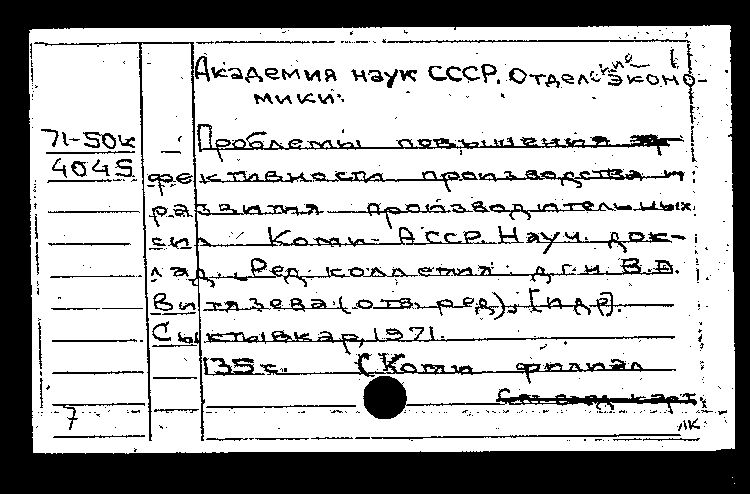 1
Академия наук СССР. Отделение эконо-
мики.
71-50к
4045
— Проблемы повышения эф-
фективности производства и
развития производительных
сил Коми АССР. Науч. док-
лад. Ред. коллегия: д.г.н. В.В.
Витязева (отв. ред), [и др].
Сыктывкар, 1971.
135 с. (Коми филиал
7
лк